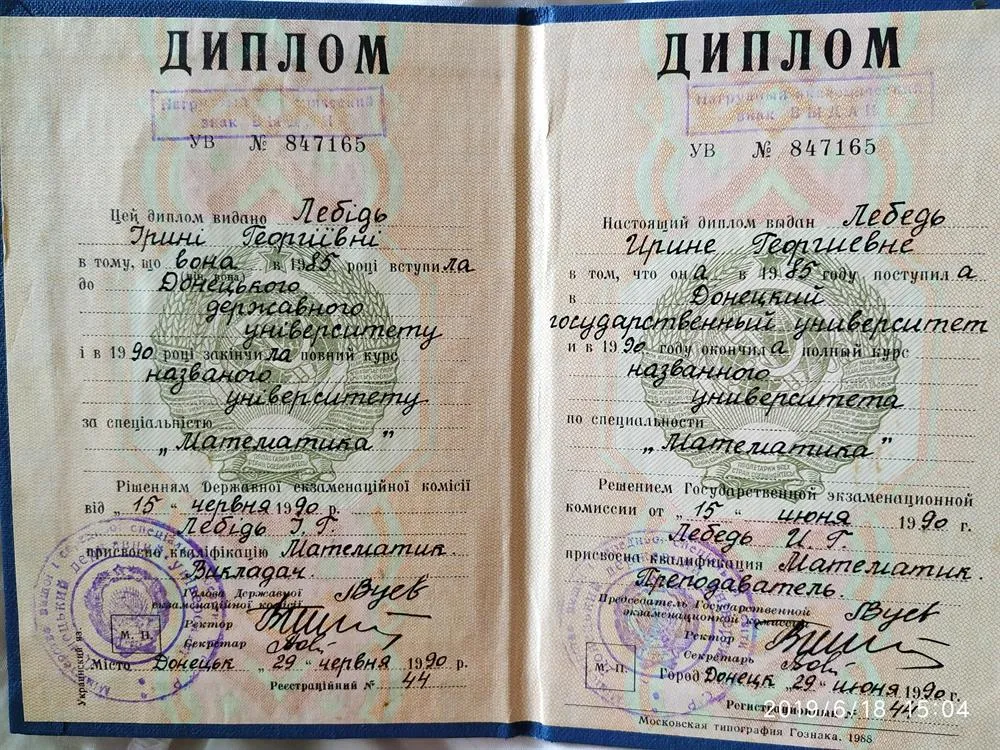 ДИПЛОМ
Нагрудный
знак
УВ № 847165
Цей диплом видано Лебідь
Ірині Георгіївні
в тому, що вона в 1985 році вступила
(він, вона)
до Донецького
державного
університету
і в 1990 році закінчила повний курс
названого
університету
за спеціальністю
„Математика”
ПРОЛЕТАРИИ ВСЕХ
СТРАН СОЕДИНЯЙТЕСЬ!
Рішенням Державної екзаменаційної комісії
від „15“ червня 1990 р.
Лебідь І. Г.
присвоєно кваліфікацію Математик.
Викладач.
Голова Державної
екзаменаційної комісії
Ректор
Секретар
М. П.
Місто Донецьк „29“ червня 1990 р.
Реєстраційний № 44
Украинский яз.
ДИПЛОМ
Нагрудный академический
знак ВЫДАН
УВ № 847165
Настоящий диплом выдан Лебедь
Ирине Георгиевне
в том, что она в 1985 году поступила
в Донецкий
государственный университет
и в 1990 году окончила полный курс
названного
университета
по специальности
„Математика”
ПРОЛЕТАРИИ ВСЕХ
СТРАН СОЕДИНЯЙТЕСЬ!
Решением Государственной экзаменационной
комиссии от „15“ июня 1990 г.
Лебедь И. Г.
присвоена квалификация Математик.
Преподаватель.
Председатель Государственной
экзаменационной комиссии
Ректор
Секретарь
М. П.
Город Донецк „29“ июня 1990 г.
Регистрационный № 44
Московская типография Гознака, 1988
2019/6/18 15:04